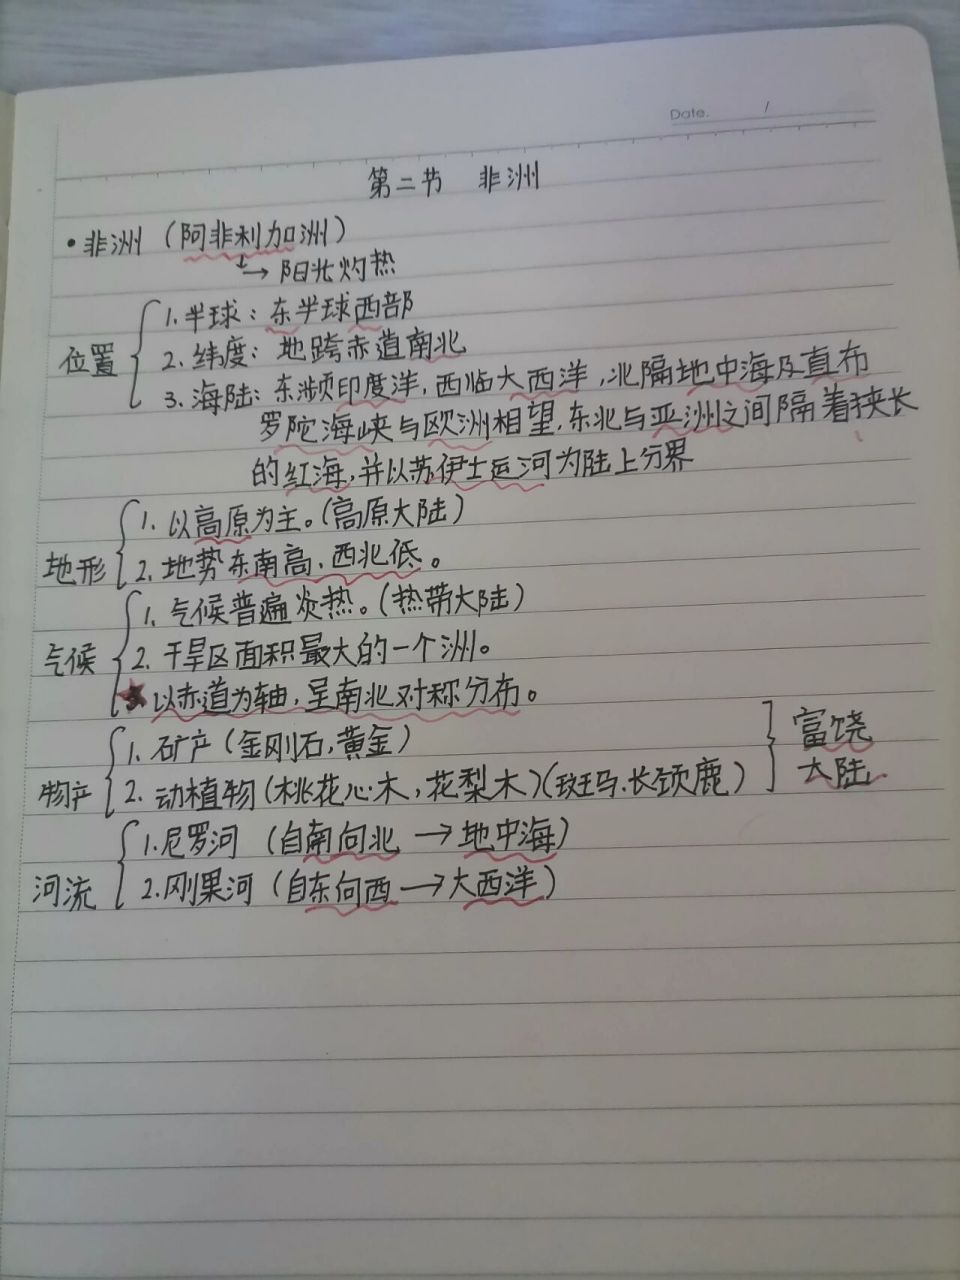 Date. /
第二节 非洲
• 非洲（阿非利加洲）
↓→ 阳光灼热
位置
1. 半球：东半球西部
2. 纬度：地跨赤道南北
3. 海陆：东濒印度洋，西临大西洋，北隔地中海及直布
罗陀海峡与欧洲相望，东北与亚洲之间隔着狭长
的红海，并以苏伊士运河为陆上分界
地形
1. 以高原为主。（高原大陆）
2. 地势东南高，西北低。
气候
1. 气候普遍炎热。（热带大陆）
2. 干旱区面积最大的一个洲。
★ 以赤道为轴，呈南北对称分布。
物产
1. 矿产（金刚石，黄金）
2. 动植物（桃花心木，花梨木）（斑马、长颈鹿）
富饶
大陆
河流
1. 尼罗河（自南向北 → 地中海）
2. 刚果河（自东向西 → 大西洋）